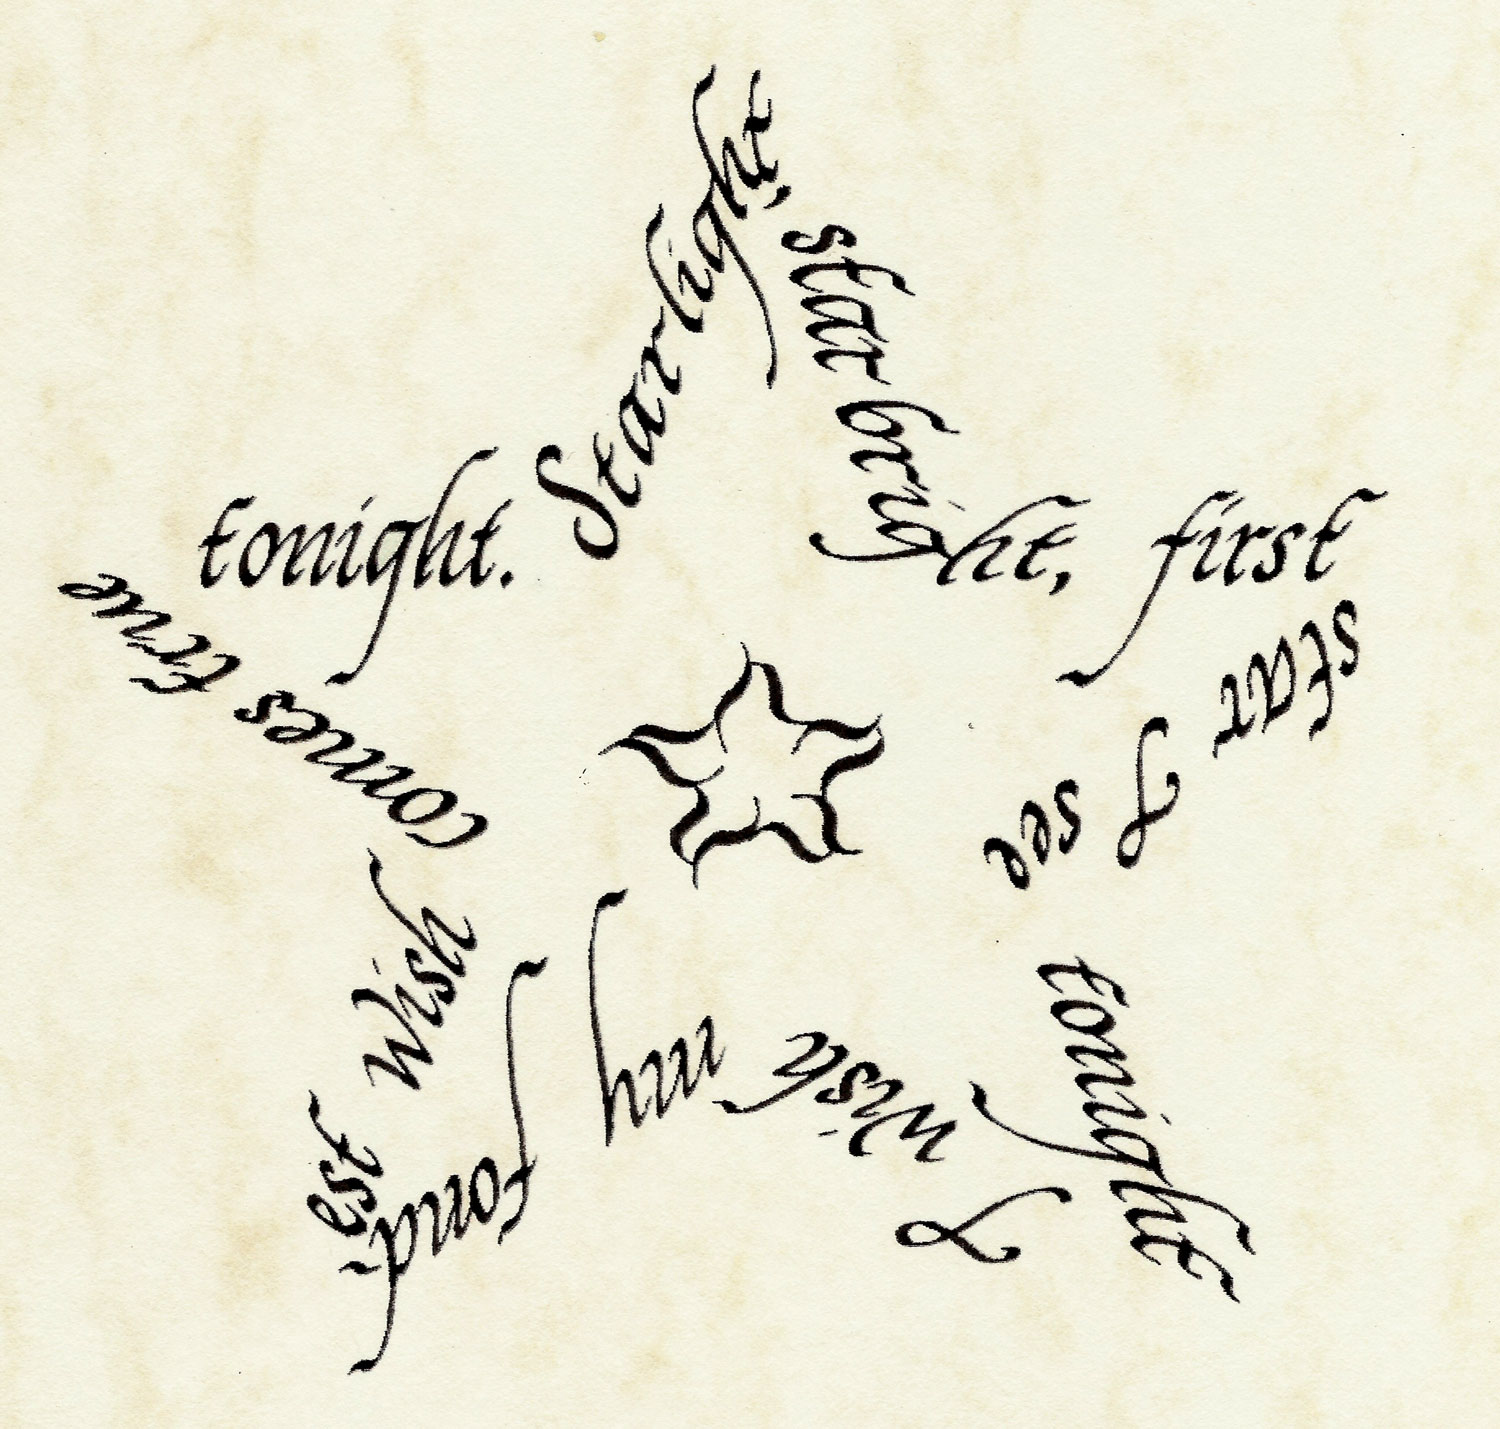 Starlight,
star bright, first
star I see
tonight
I wish
my fondest wish
comes true
tonight.